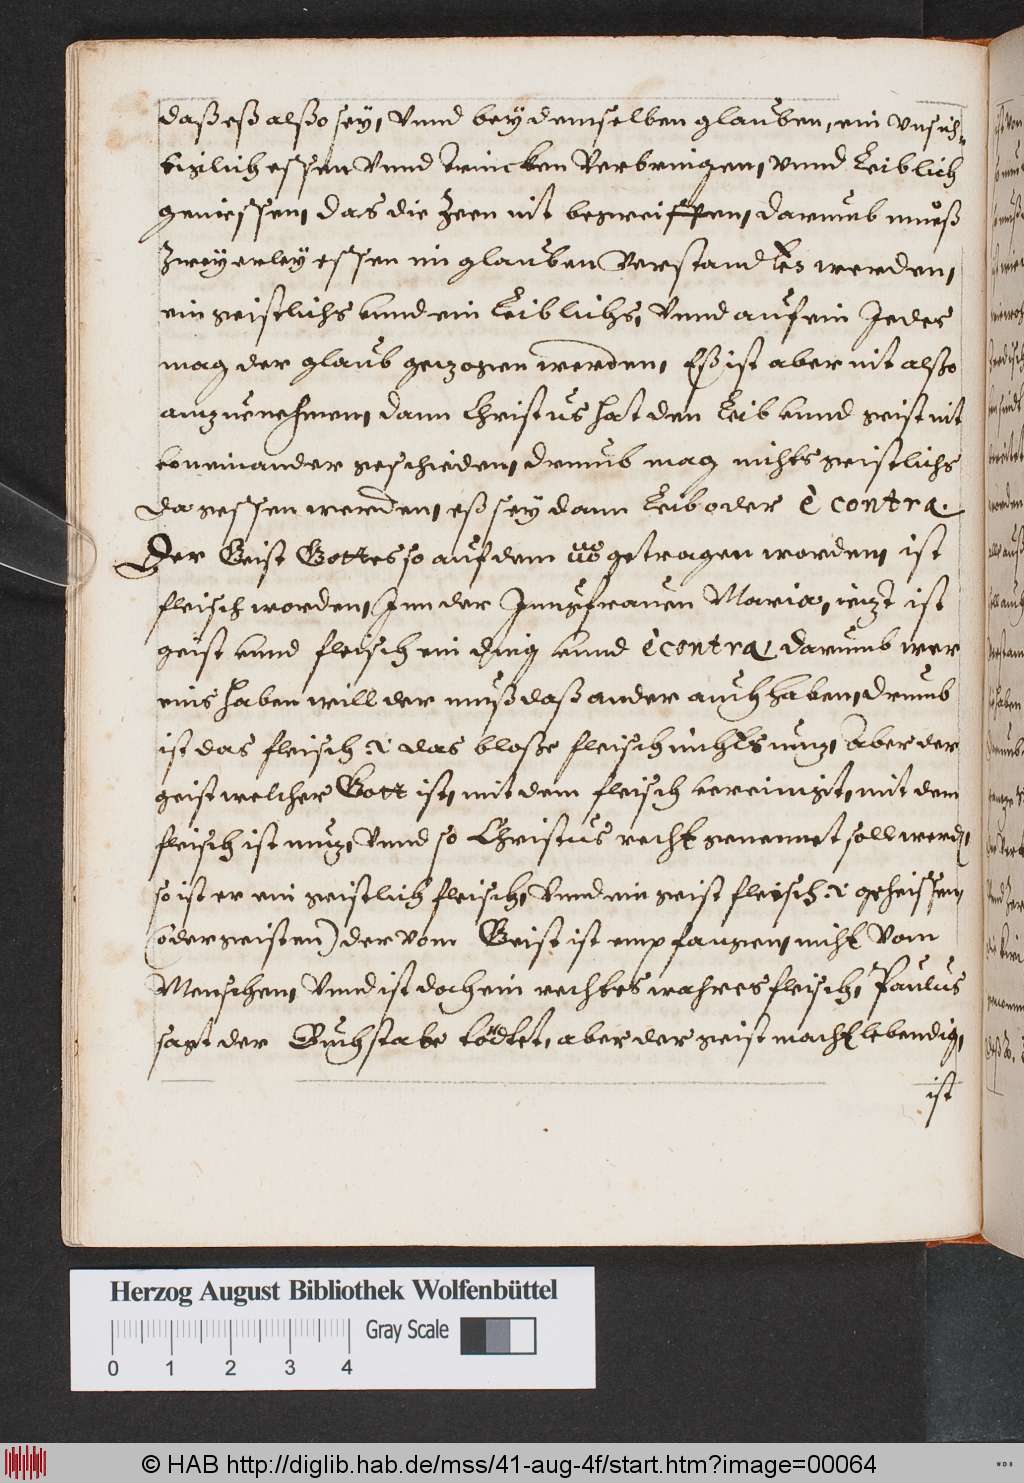 daß eß alßo seÿ, Vnnd beÿ demselben glauben, ein vnsich=
tigilich essen Vnnd trincken Verbringen, vnnd Leiblich
geniessen, das die Zeen nit begreiffen, darumb mueß
zweÿerleÿ essen im glauben Verstanden werden,
ein geistlichs vnnd ein Leiblichs, Vnnd auf ein Jedes
mag der glaub gezogen werden, Eß ist aber nit alßo
anzuenehmen, dann Christus hat den Leib vnnd geist nit
von einander geschieden, drumb mag nichts geistlichs
da gessen werden, eß seÿ dann Leib oder è contra.
Der Geist Gottes so auf dem getragen worden, ist
fleisch worden, Inn der Jungfrauen Maria, ietzt ist
geist vnnd fleisch ein ding vnnd è contra, darumb wer
eins haben will der muß daß ander auch haben, drumb
ist das fleisch .i. das bloße fleisch nichts nutz, Aber der
geist welcher Gott ist, mit dem fleisch vereinigt, mit dem
fleisch ist nutz, Vnnd so Christus recht genennet soll werdn,
so ist er ein geistlich fleisch, Vnnd ein geist fleisch .i. geheissen
(oder geisten) der vom Geist ist empfangen, nicht Vom
Menschen, Vnnd ist doch ein rechtes wahres fleisch, Paulus
sagt der Buchstabe tödtet, aber der geist macht lebendig,
ist
Herzog August Bibliothek Wolfenbüttel
Gray Scale
0 1 2 3 4
© HAB http://diglib.hab.de/mss/41-aug-4f/start.htm?image=00064